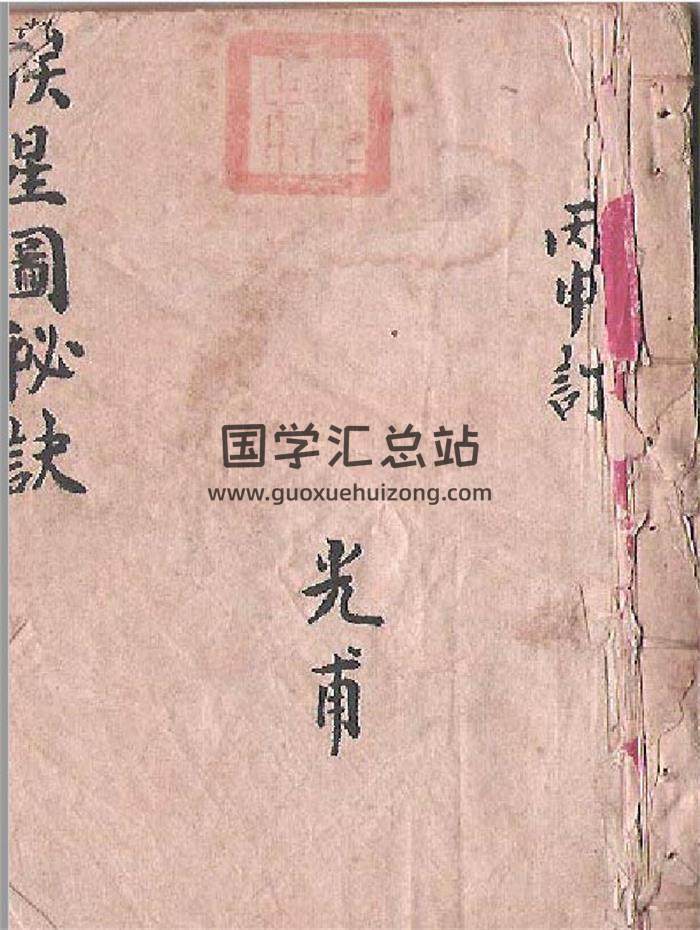 丙申訂
光甫
挨星圖秘訣
国学汇总站
www.guoxuehuizong.com